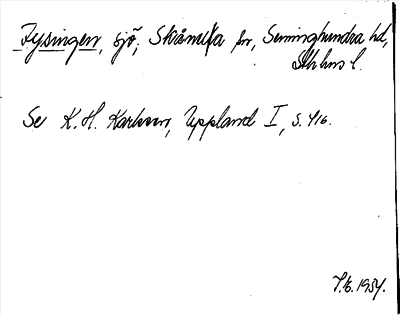 Fysingen, sjö, Skånela sn, Seminghundra hd,
Sthlms l.
Se K. H. Karlsson, Uppland I, s. 416.
1954.